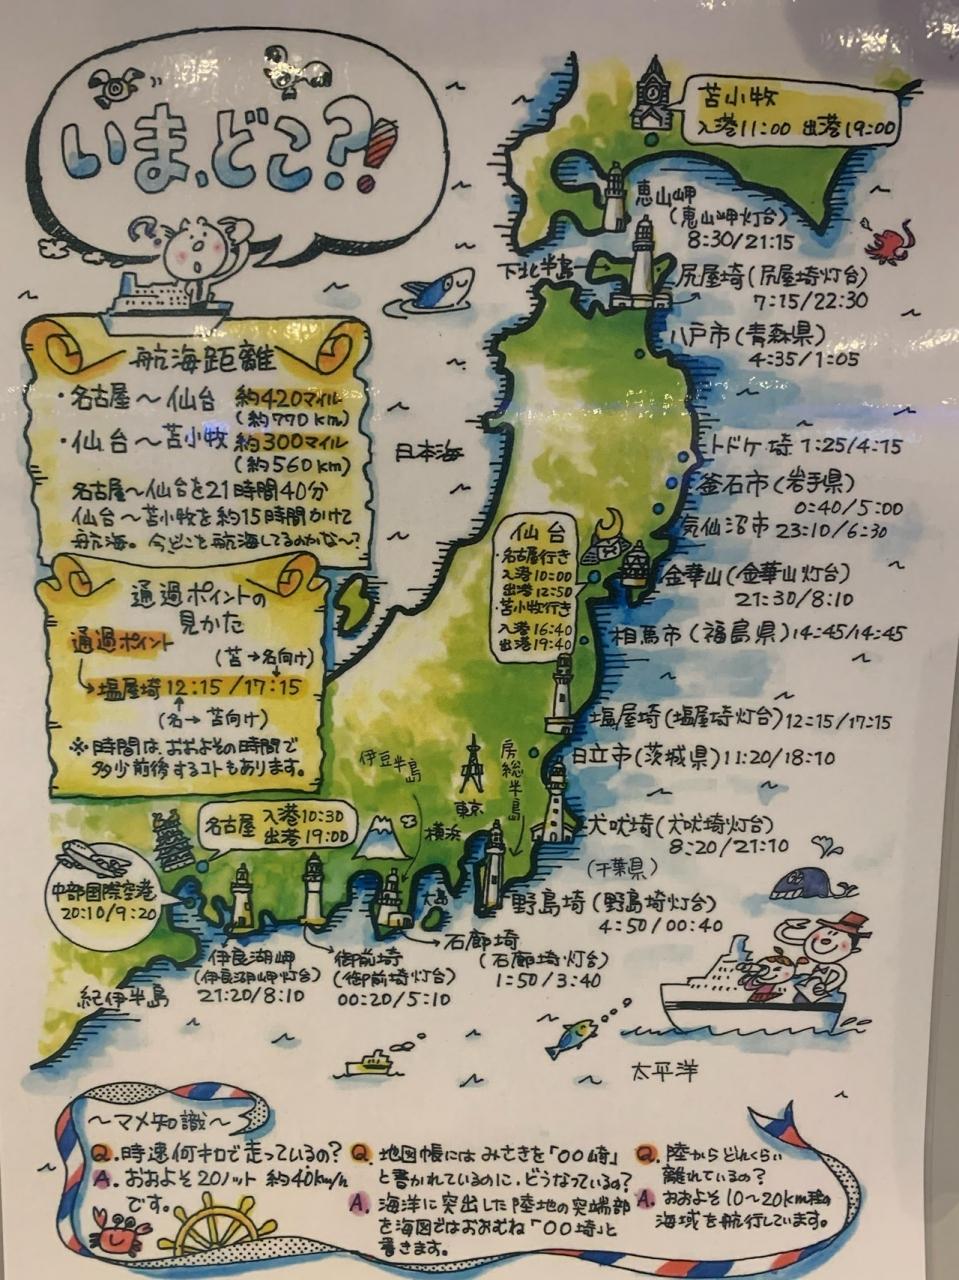 いま、どこ??!
苫小牧
入港11:00 出港19:00
恵山岬
(恵山岬灯台)
8:30/21:15
下北半島
尻屋埼(尻屋埼灯台)
7:15/22:30
八戸市(青森県)
4:35/1:05
航海距離
・名古屋〜仙台 約420マイル
(約770km)
・仙台〜苫小牧 約300マイル
(約560km)
名古屋〜仙台を21時間40分
仙台〜苫小牧を約15時間かけて
航海。今どこを航海してるのかな〜?
日本海
トドケ埼 1:25/4:15
釜石市(岩手県)
0:40/5:00
気仙沼市 23:10/6:30
仙台
・名古屋行き
入港10:00
出港12:50
・苫小牧行き
入港16:40
出港19:40
金華山(金華山灯台)
21:30/8:10
相馬市(福島県)14:45/14:45
通過ポイントの
見かた
通過ポイント
(苫→名向け)
塩屋埼 12:15/17:15
(名→苫向け)
※時間は、おおよその時間で
多少前後するコトもあります。
塩屋埼(塩屋埼灯台)12:15/17:15
日立市(茨城県)11:20/18:10
伊豆半島
東京
房総半島
横浜
大島
犬吠埼(犬吠埼灯台)
8:20/21:10
(千葉県)
名古屋 入港10:30
出港19:00
中部国際空港
20:10/9:20
野島埼(野島埼灯台)
4:50/00:40
石廊埼
(石廊埼灯台)
1:50/3:40
伊良湖岬
(伊良湖岬灯台)
21:20/8:10
御前埼
(御前埼灯台)
00:20/5:10
紀伊半島
太平洋
〜マメ知識〜
Q. 時速何キロで走っているの?
A. おおよそ20ノット 約40km/h
です。
Q. 地図帳には みさきを「〇〇崎」
と書かれているのに、どうなっているの?
A. 海洋に突出した陸地の突端部
を海図ではおおむね「〇〇埼」と
書きます。
Q. 陸からどれくらい
離れているの?
A. おおよそ10〜20km程の
海域を航行しています。